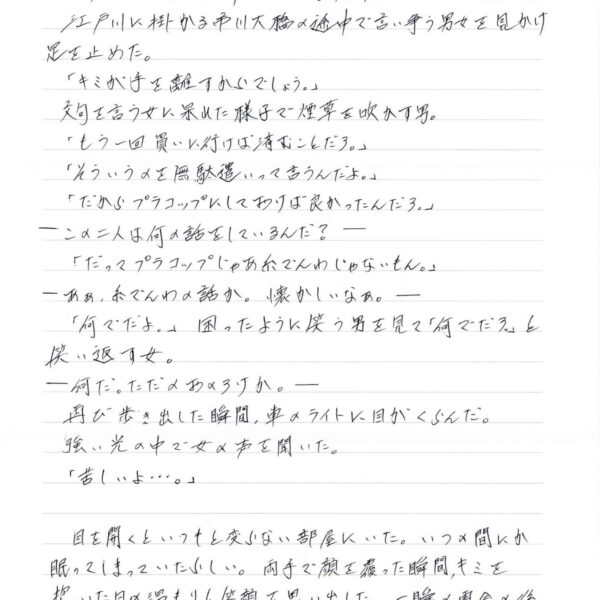 江戸川に掛かる市川大橋の途中で言い争う男女を見かけ
足を止めた。
「キミが手を離すからでしょう。」
文句を言う女に呆れた様子で煙草を吹かす男。
「もう一回買いに行けば済むことだろ。」
「そういうのを無駄遣いって言うんだよ。」
「だからプラコップにしておけば良かったんだろ。」
―この二人は何の話をしているんだ？―
「だってプラコップじゃあ糸でんわじゃないもん。」
―あぁ、糸でんわの話か。懐かしいなぁ。―
「何でだよ。」困ったように笑う男を見て「何でだろ」と
笑い返す女。
―何だ。ただののろけか。―
再び歩き出した瞬間、車のライトに目がくらんだ。
強い光の中で女の声を聞いた。
「苦しいよ…。」
目を開くといつもと変らない部屋にいた。いつの間にか
眠ってしまっていたらしい。両手で顔を覆った瞬間、キミを
抱いた日の温もりと笑顔を思い出した。一瞬の再会の後